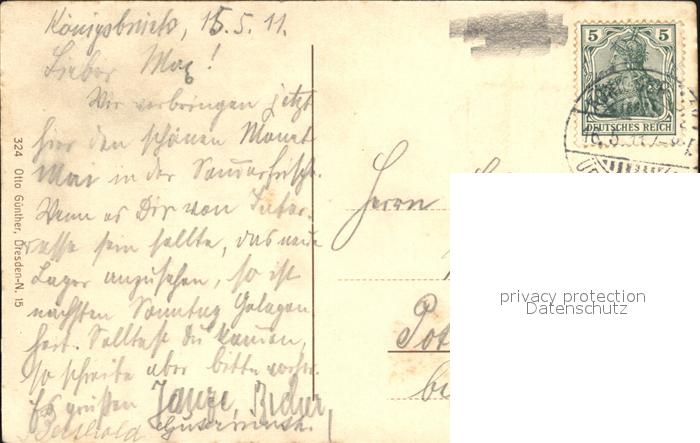 Königsbrück, 15.5.11.
Lieber Max!
Wir verbringen jetzt
hier den schönen Monat
Mai in der Sommerfrische.
Wenn es Dir von Inter-
esse sein sollte, das neue
Lager anzusehen, so ist
nächsten Sonntag Gelegen
heit. Solltest Du kommen,
so schreibe aber bitte vorher.
Es grüßen
Berthold
324 Otto Günther, Dresden-N. 15
5 5
DEUTSCHES REICH
Herrn
Pot
bei
privacy protection
Datenschutz